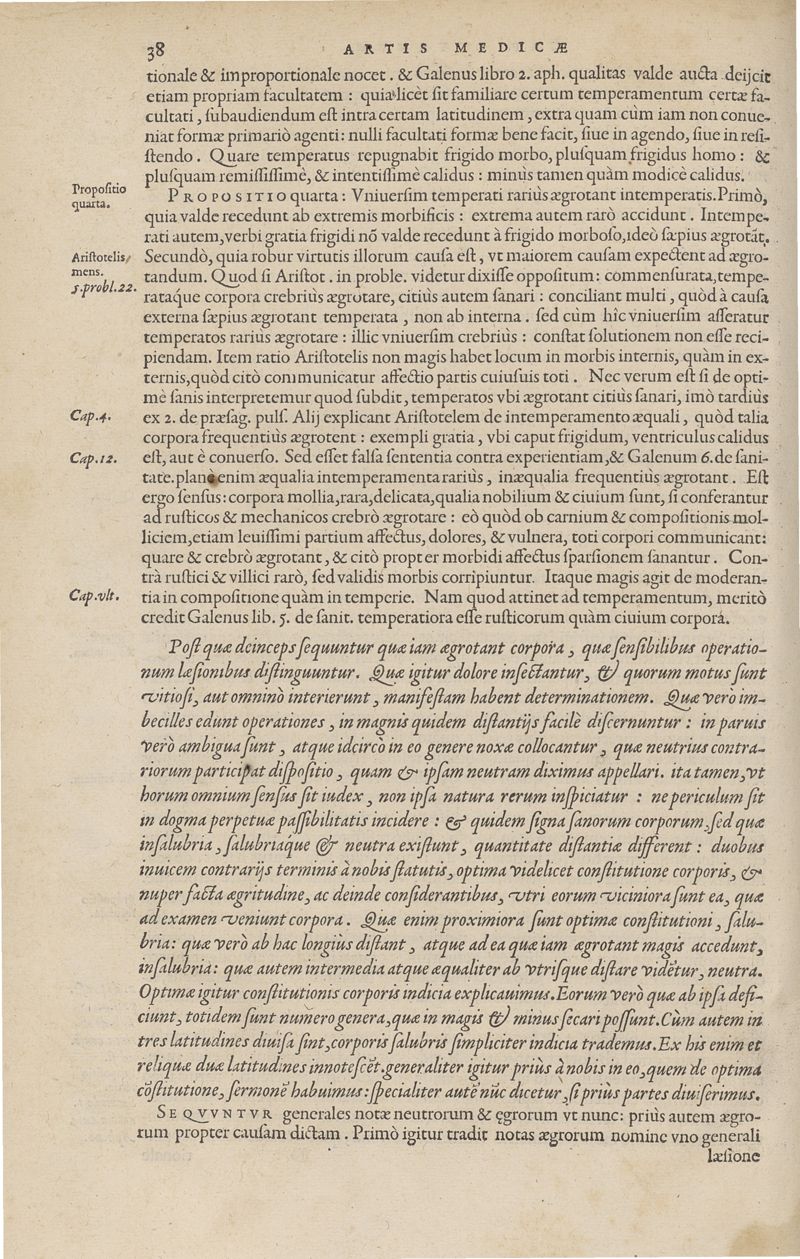 38 ARTIS MEDICÆ
tionale & improportionale nocet. & Galenus libro 2. aph. qualitas valde aucta deijcit
etiam propriam facultatem : quia licèt sit familiare certum temperamentum certæ fa-
cultati, subaudiendum est intra certam latitudinem, extra quam cùm iam non conue-
niat formæ primariò agenti: nulli facultati formæ bene facit, siue in agendo, siue in resi-
stendo. Quare temperatus repugnabit frigido morbo, plusquam frigidus homo : &
plusquam remississimè, & intentissimè calidus : minùs tamen quàm modicè calidus.
Propositio
quarta.
PROPOSITIO quarta : Vniuersim temperati rariùs ægrotant intemperatis. Primò,
quia valde recedunt ab extremis morbificis : extrema autem rarò accidunt. Intempe-
rati autem, verbi gratia frigidi nō valde recedunt à frigido morboso, ideò sæpius ægrotāt.
Aristotelis
mens.
5. probl. 22.
Secundò, quia robur virtutis illorum causa est, vt maiorem causam expectent ad ægro-
tandum. Quod si Aristot. in proble. videtur dixisse oppositum : commensurata, tempe-
rataq́ue corpora crebriùs ægrotare, citiùs autem sanari : conciliant multi, quòd à causa
externa sæpius ægrotant temperata, non ab interna. sed cùm hìc vniuersim asseratur
temperatos rariùs ægrotare : illic vniuersim crebriùs : constat solutionem non esse reci-
piendam. Item ratio Aristotelis non magis habet locum in morbis internis, quàm in ex-
ternis, quòd citò communicatur affectio partis cuiusuis toti. Nec verum est si de opti-
mè sanis interpretemur quod subdit, temperatos vbi ægrotant citiùs sanari, imò tardiùs
Cap. 4.
ex 2. de præsag. puls. Alij explicant Aristotelem de intemperamento æquali, quòd talia
corpora frequentiùs ægrotent : exempli gratia, vbi caput frigidum, ventriculus calidus
Cap. 12.
est, aut è conuerso. Sed esset falsa sententia contra experientiam, & Galenum 6. de sani-
tate. planè enim æqualia intemperamenta rariùs, inæqualia frequentiùs ægrotant. Est
ergo sensus: corpora mollia, rara, delicata, qualia nobilium & ciuium sunt, si conferantur
ad rusticos & mechanicos crebrò ægrotare : eò quòd ob carnium & compositionis mol-
liciem, etiam leuissimi partium affectus, dolores, & vulnera, toti corpori communicant:
quare & crebrò ægrotant, & citò propter morbidi affectus sparsionem sanantur. Con-
trà rustici & villici rarò, sed validis morbis corripiuntur. Itaque magis agit de moderan-
Cap. vlt.
tia in compositione quàm in temperie. Nam quod attinet ad temperamentum, meritò
credit Galenus lib. 5. de sanit. temperatiora esse rusticorum quàm ciuium corpora.
Post quæ deinceps sequuntur quæ iam ægrotant corpora, quæ sensibilibus operatio-
num læsionibus distinguuntur. Quæ igitur dolore infectantur, & quorum motus sunt
vitiosi, aut omninò interierunt, manifestam habent determinationem. Quæ verò im-
becilles edunt operationes, in magnis quidem distantijs facilè discernuntur : in paruis
verò ambigua sunt, atque idcircò in eo genere noxæ collocantur, quæ neutrius contra-
riorum participat dispositio, quam & ipsam neutram diximus appellari. ita tamen, vt
horum omnium sensus sit iudex, non ipsa natura rerum inspiciatur : ne periculum sit
in dogma perpetuæ passibilitatis incidere : & quidem signa sanorum corporum, sed quæ
insalubria, salubriaq́ue & neutra existunt, quantitate distantiæ different : duobus
inuicem contrarijs terminis à nobis statutis, optima videlicet constitutione corporis, &
nuper facta ægritudine, ac deinde considerantibus, vtri eorum viciniora sunt ea, quæ
ad examen veniunt corpora. Quæ enim proximiora sunt optimæ constitutioni, salu-
bria : quæ verò ab hac longiùs distant, atque ad ea quæ iam ægrotant magis accedunt,
insalubria : quæ autem intermedia atque æqualiter ab vtrisque distare vidētur, neutra.
Optimæ igitur constitutionis corporis indicia explicauimus. Eorum verò quæ ab ipsa defi-
ciunt, totidem sunt numero genera, quæ in magis & minus secari possunt. Cùm autem in
tres latitudines diuisa sint, corporis salubris simpliciter indicia trademus. Ex his enim et
reliquæ duæ latitudines innotescēt. generaliter igitur priùs à nobis in eo, quem de optima
cōstitutione, sermonē habuimus : specialiter autē nūc dicetur, si priùs partes diuiserimus.
SEQVVNTVR generales notæ neutrorum & ęgrorum vt nunc: priùs autem ægro-
rum propter causam dictam. Primò igitur tradit notas ægrorum nomine vno generali
læsione